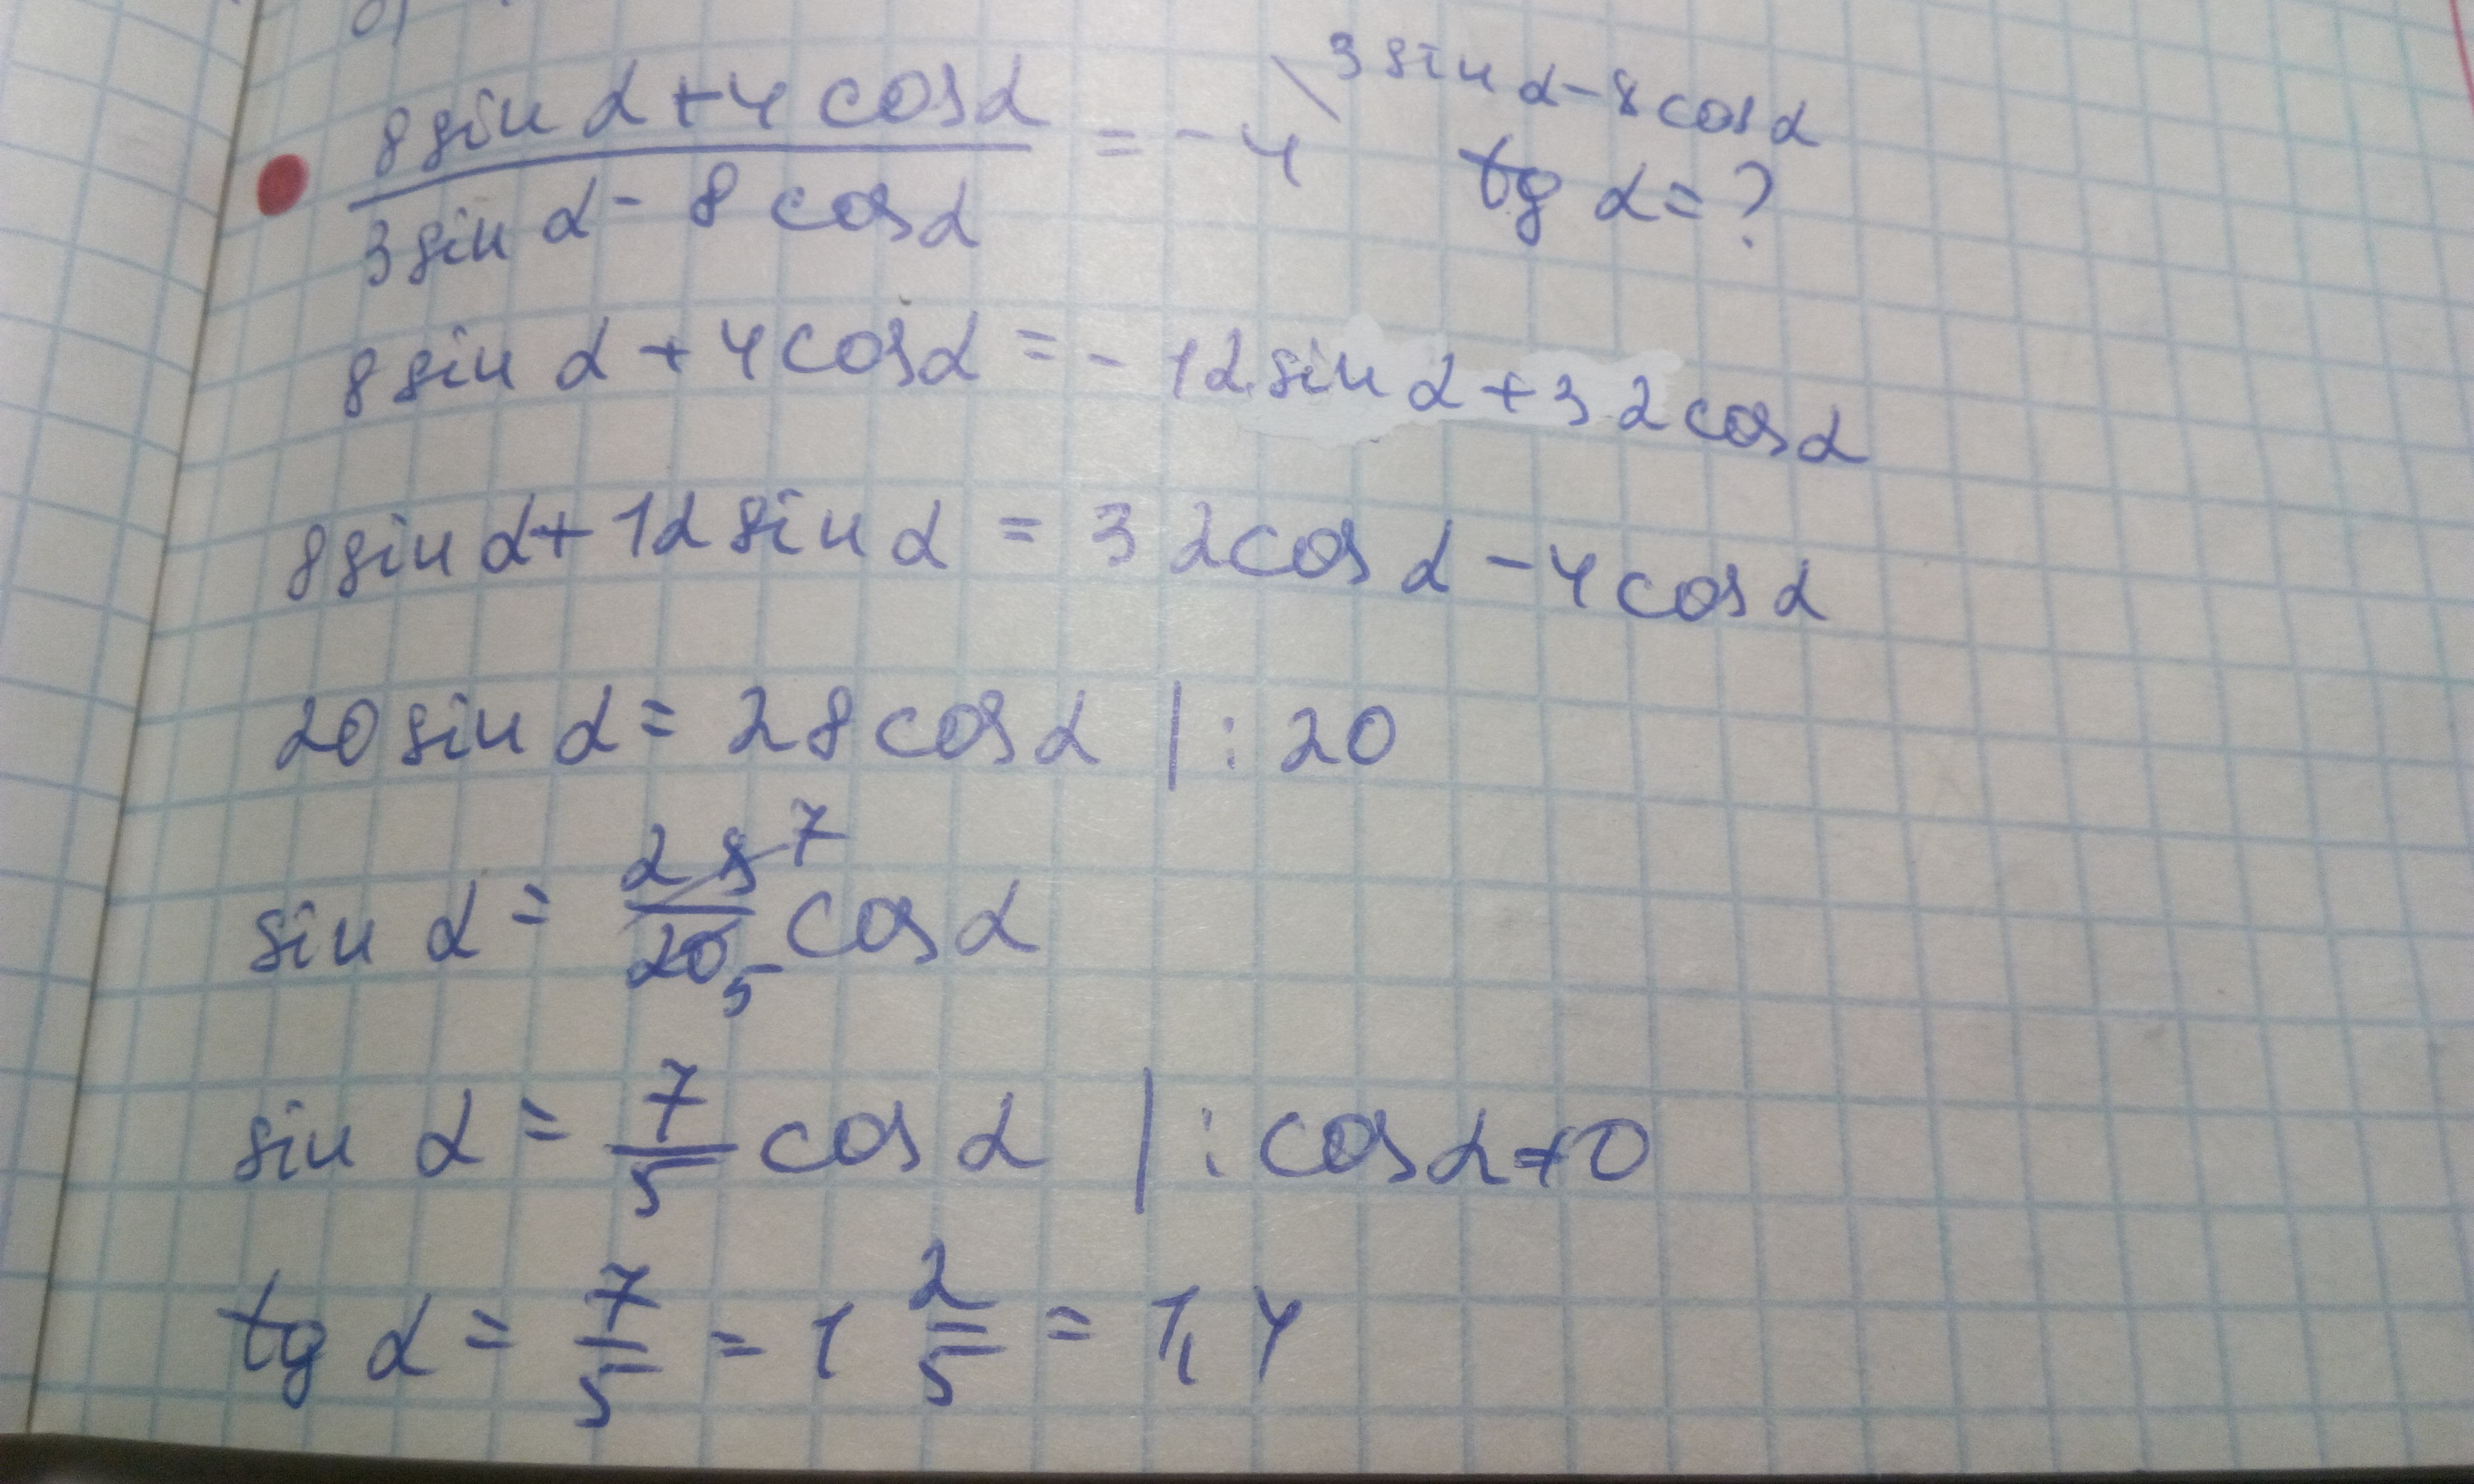 б)
(8 sin α + 4 cos α)/(3 sin α - 8 cos α) = - 4 \ 3 sin α - 8 cos α tg α = ?
8 sin α + 4 cos α = - 12 sin α + 32 cos α
8 sin α + 12 sin α = 32 cos α - 4 cos α
20 sin α = 28 cos α | : 20
sin α = 28/20 7/5 cos α
sin α = 7/5 cos α | : cos α ≠ 0
tg α = 7/5 = 1 2/5 = 1,4